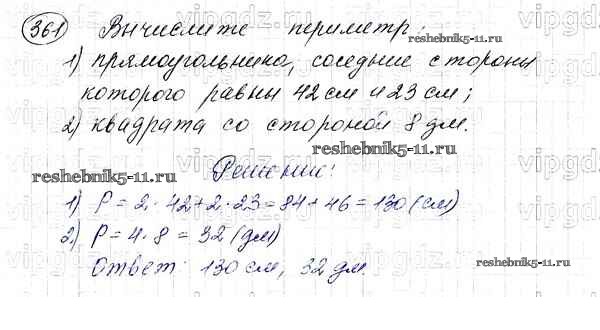 361 Вычислите периметр:
reshebnik5-11.ru
1) прямоугольника, соседние стороны
которого равны 42 см и 23 см;
2) квадрата со стороной 8 дм.
reshebnik5-11.ru
Решение:
reshebnik5-11.ru
1) P = 2 · 42 + 2 · 23 = 84 + 46 = 130 (см)
2) P = 4 · 8 = 32 (дм)
Ответ: 130 см, 32 дм.
reshebnik5-11.ru